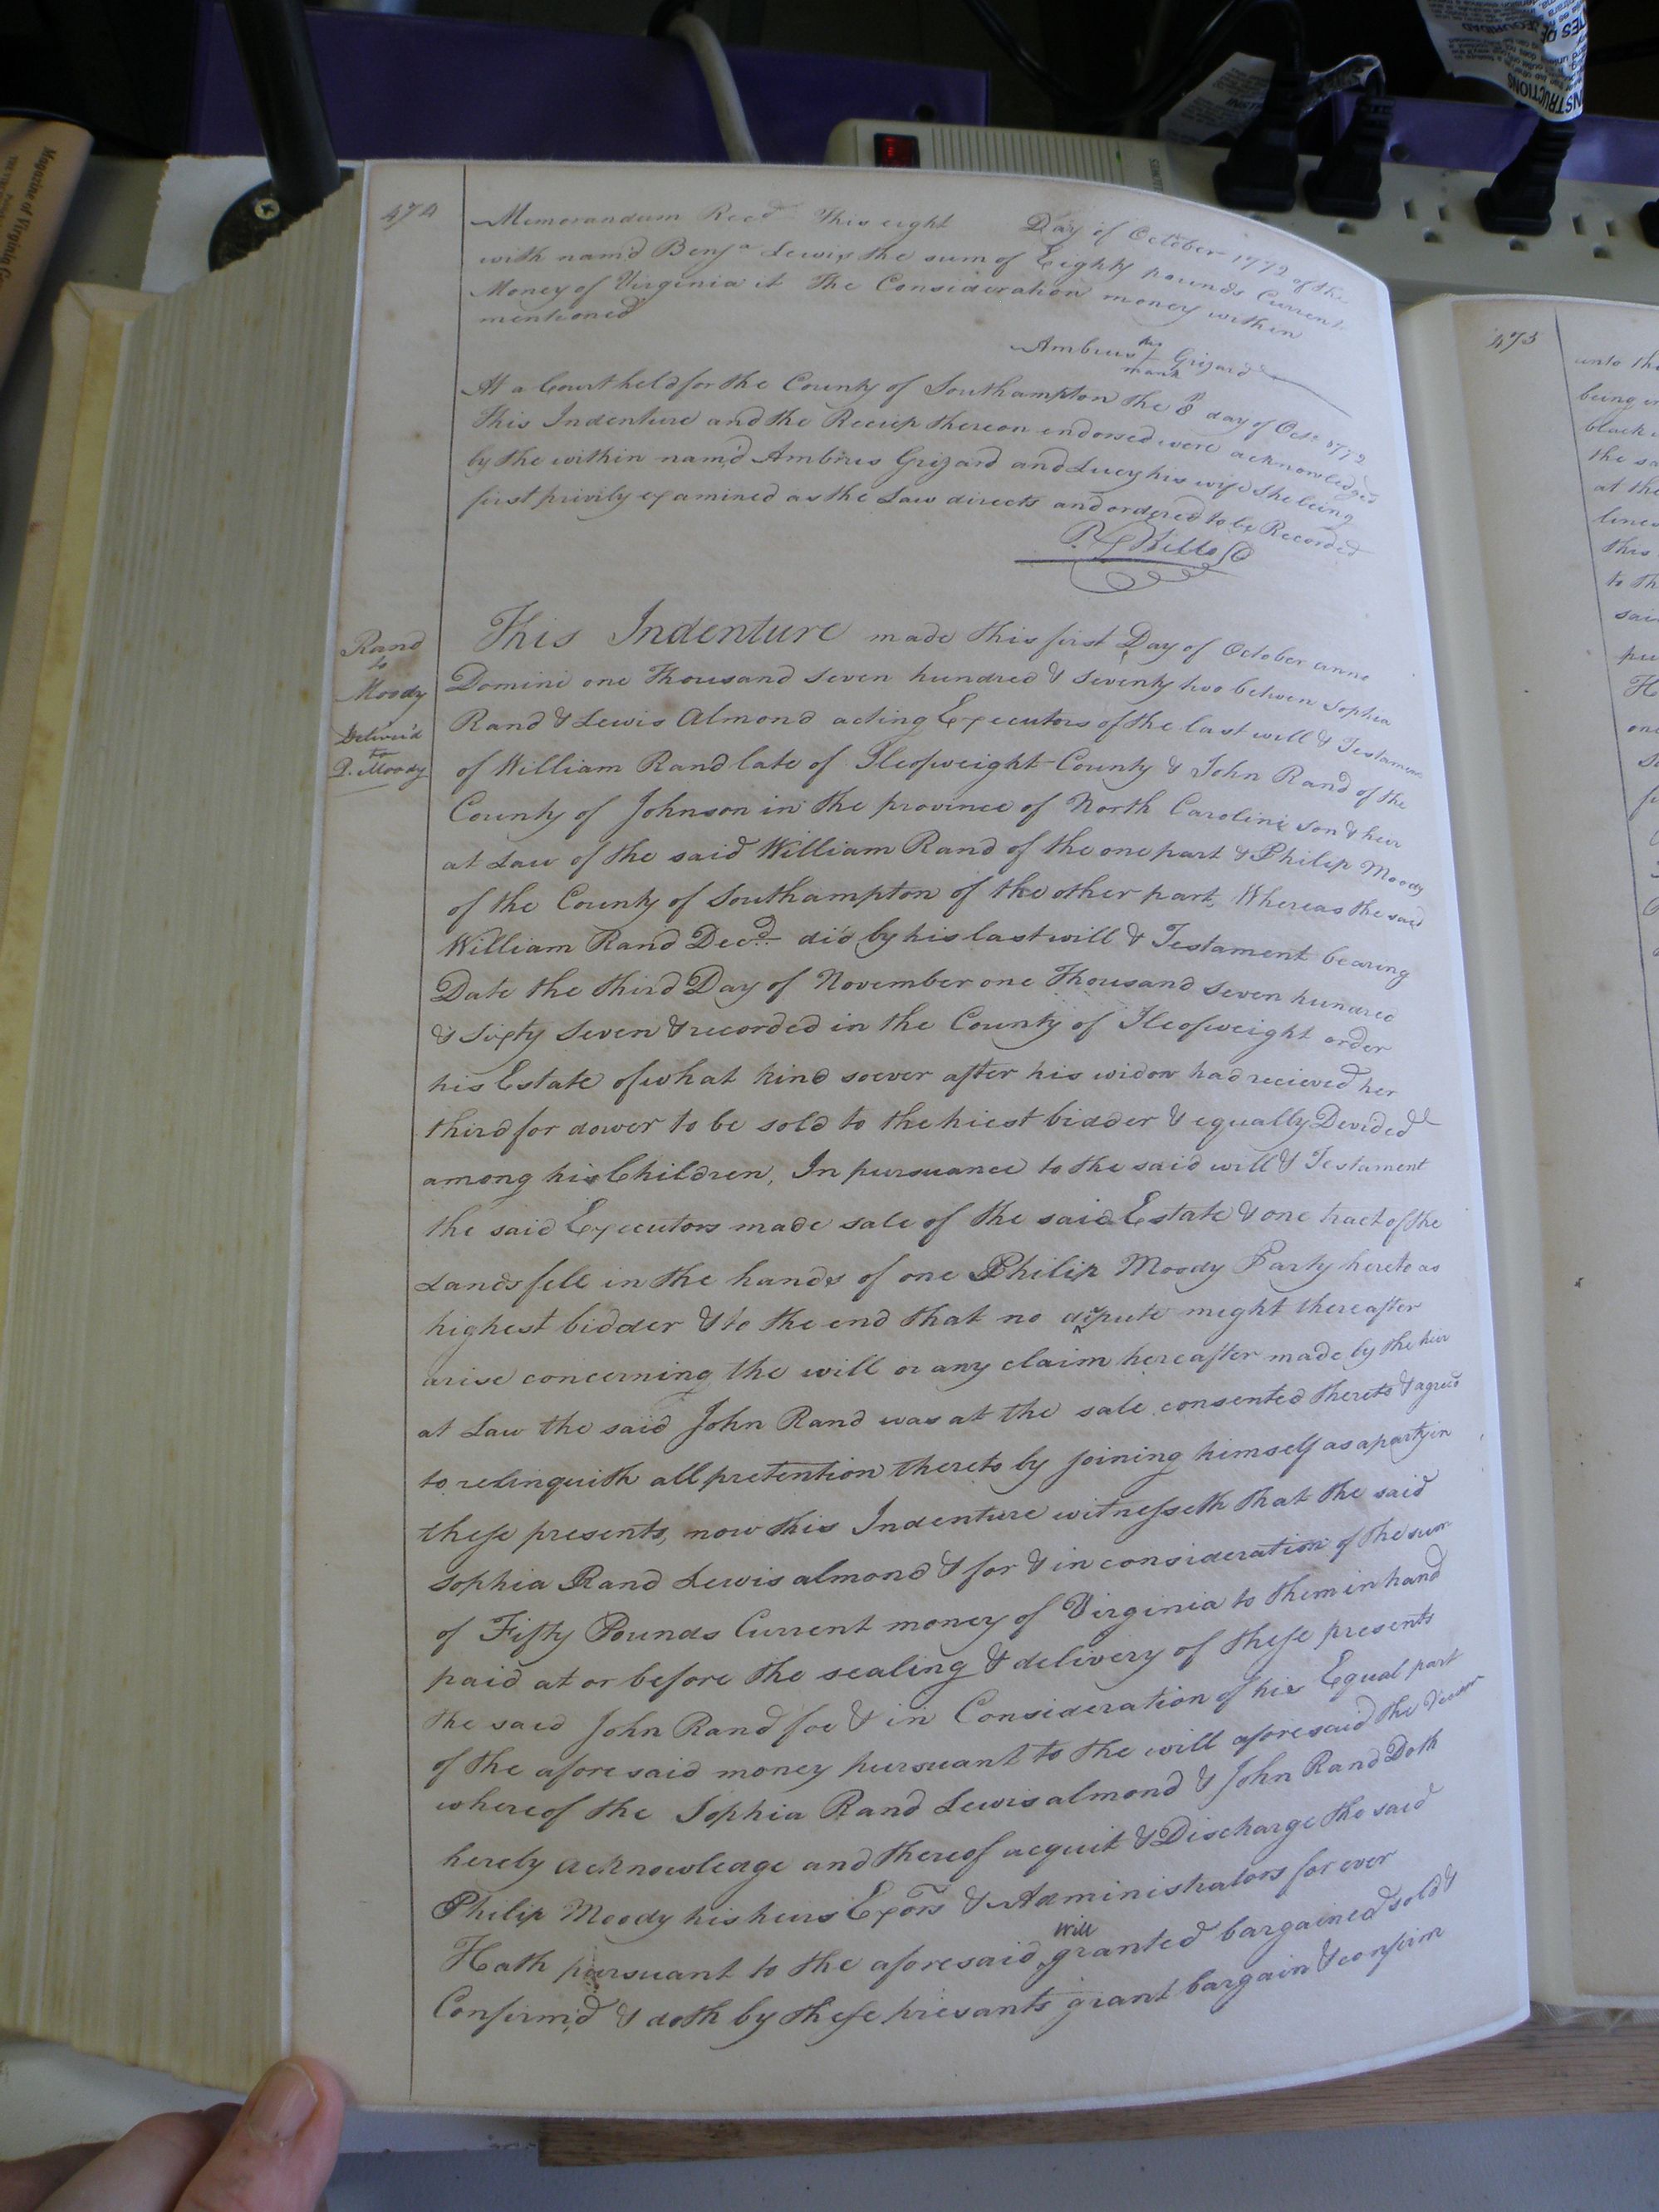 474
Memorandum Recd This eight Day of October 1772 of the
with nam'd Benja Lewis the sum of Eighty pounds Current
Money of Virginia it The Consideration money within
mentioned
his
Ambrus Grizard
mark
At a Court held for the County of Southampton the 8 day of Octr 1772
This Indenture and the Receip thereon endorsed were acknowledged
by the within nam'd Ambrus Grizard and Lucy his wife she being
first privily examined as the Law directs and ordered to be Recorded
Rand
to
Moody
Deliver'd
to
P. Moody
This Indenture made this first Day of October anno
Domini one Thousand Seven hundred & Seventy two betwen Sophia
Rand & Lewis Almond acting Executors of the last will & Testament
of William Rand late of Ileofweight County & John Rand of the
County of Johnson in the province of North Carolini son & heir
at Law of the said William Rand of the one part & Philip Moody
of the County of Southampton of the other part, Whereas the said
William Rand Decd. did by his last will & Testament bearing
Date the third Day of November one Thousand Seven hundred
& Sixty Seven & recorded in the County of Ileofweight order
his Estate of what kind soever after his widow had recieved her
third for dower to be sold to the hiest bidder & equally Devided
among his Children, In pursuance to the said will & Testament
the said Executors made sale of the said Estate & one tract of the
Lands fell in the hands of one Philip Moody Party hereto as
highest bidder & to the end that no dispute meght thereafter
arise concerning the will or any claim hereafter made by the heir
at Law the said John Rand was at the sale consented thereto & agreed
to relinquith all pretention thereto by joining himself as a party in
these presents, now this Indenture witnesseth that the said
Sophia Rand Lewis almond & for & in consideration of the sum
of Fifty Pounds Current money of Virginia to them in hand
paid at or before the sealing & delivery of these presents
the said John Rand foe & in Consideration of his Equal part
of the afore said money pursuant to the will aforesaid the
whereof the Sophia Rand Lewis almond & John Rand Doth
hereby acknowledge and thereof acquit & Discharge the said
Philip Moody his heirs Exors & Administrators for ever
Hath pursuant to the aforesaid will granted bargained sold &
Confirm'd & doth by these presants grant bargain & confirm
475
unto the
being
black
the
at the
lines
this
to th
said
Magazine of Virginia
INSTRUCTIONS